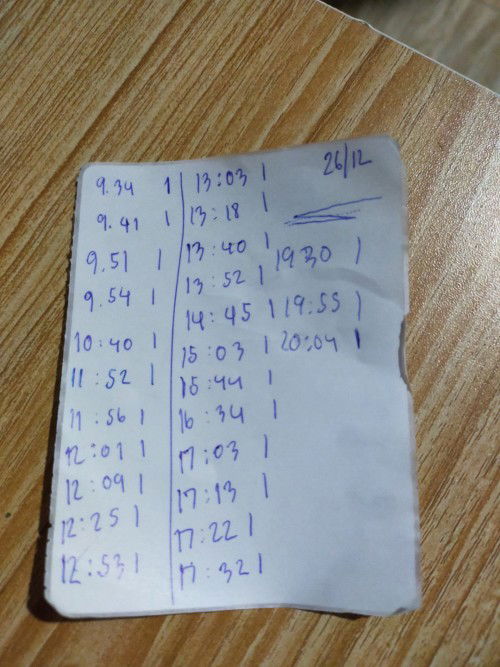 26/12
9.34 1
9.41 1
9.51 1
9.54 1
10:40 1
11:52 1
11:56 1
12:01 1
12:09 1
12:25 1
12:53 1
13:03 1
13:18 1
13:40 1
13:52 1
14:45 1
15:03 1
15:44 1
16:34 1
17:03 1
17:13 1
17:22 1
17:32 1
19:30 1
19:55 1
20:04 1